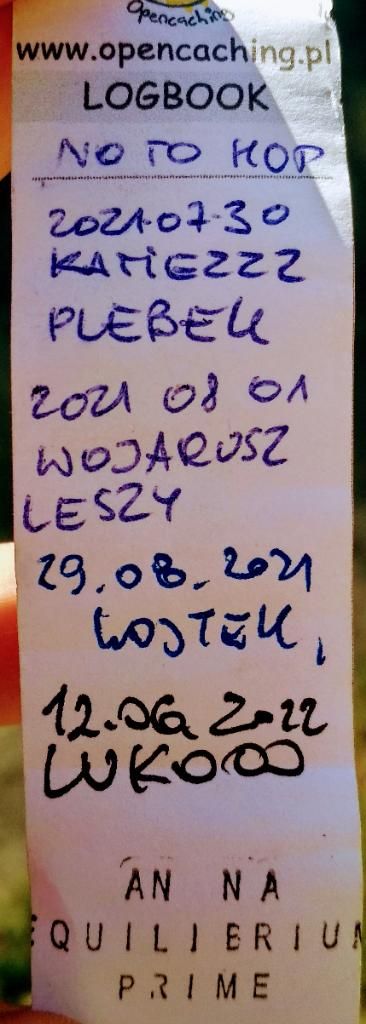 Opencaching
www.opencaching.pl
LOGBOOK
NO TO HOP
2021-07-30
KAMIEZZZ
PLEBEK
2021 08 01
WOJARUSZ
LESZY
29.08.2021
WOJTEK,
12.06 2022
LUKOOO
AN NA
EQUILIBRIUM
PRIME